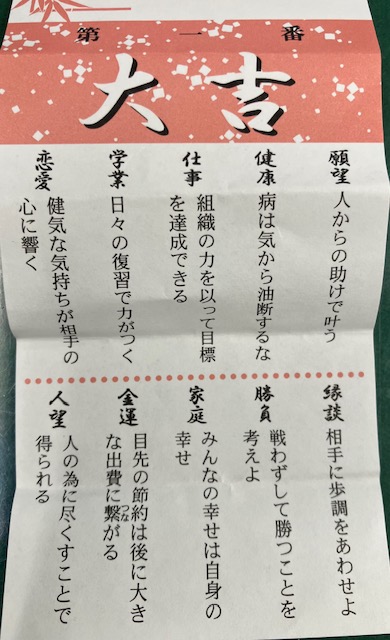 第一番
大吉
願望 人からの助けで叶う
健康 病は気から油断するな
仕事 組織の力を以って目標
を達成できる
学業 日々の復習で力がつく
恋愛 健気な気持ちが相手の
心に響く
縁談 相手に歩調をあわせよ
勝負 戦わずして勝つことを
考えよ
家庭 みんなの幸せは自身の
幸せ
金運 目先の節約は後に大き
な出費に繋がる
つな
人望 人の為に尽くすことで
得られる